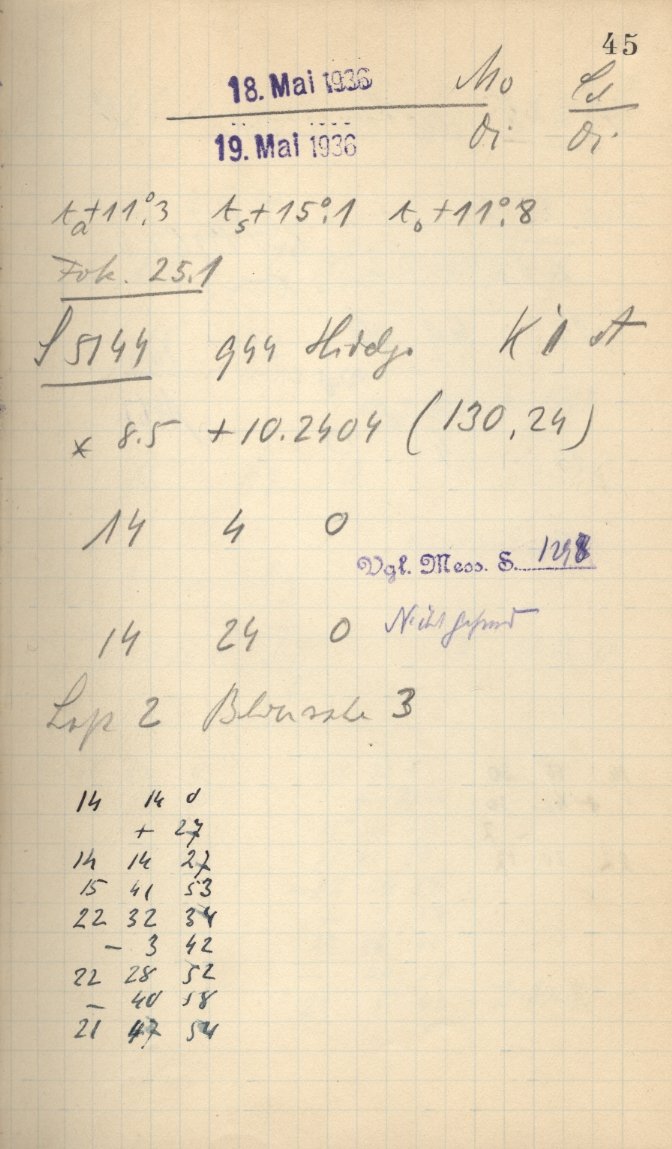 45
18. Mai 1936 Mo
19. Mai 1936 Di Di
ta+11°.3 ts+15°.1 to+11°.8
Fok. 25.1
S 5144 944 Hidalgo K A
* 8.5 +10.2404 (130,24)
14 4 0
Vgl. Mess. S. 1298
14 24 0 Nicht
2 3
14 14 0
+ 27
14 14 27
15 41 53
22 32 34
- 3 42
22 28 52
- 40 58
21 47 54